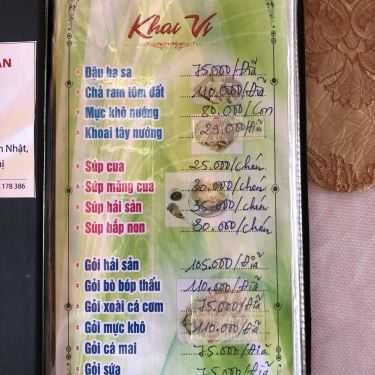 Khai Vị
Đậu hạ sa 75.000/Dĩa
Chả ram tôm đất 110.000/Dĩa
Mực khô nướng 80.000/Con
Khoai tây nướng 29.000/Dĩa
Súp cua 25.000/chén
Súp măng cua 30.000/chén
Súp hải sản 35.000/chén
Súp bắp non 30.000/chén
Gỏi hải sản 105.000/Dĩa
Gỏi bò bóp thấu 110.000/Dĩa
Gỏi xoài cá cơm 75.000/Dĩa
Gỏi mực khô 110.000/Dĩa
Gỏi cá mai 75.000/Dĩa
Gỏi sứa 75.000/Dĩa
AN
Nhật,
178 386